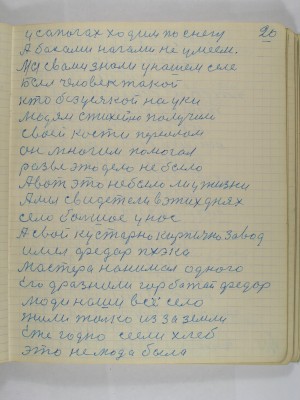 20
у сапогах ходим по снегу
А босами нагами не умеем.
Мы с вами знали у нашем селе
Был человек такой
кто без усякой науки
людям
своей кости перелом
он многим помогал
разве это дело не было
А вот это небыло ли у жизни
А ми свидетели в этих днях
село большое у нос
А свой кустарно кирпично завод
имел федар
Мастера нанимал одного
Его дразнили гарбатай федар
Люди наши всё село
жили толко из за земли
Еже годно сеели хлеб
это не мода была